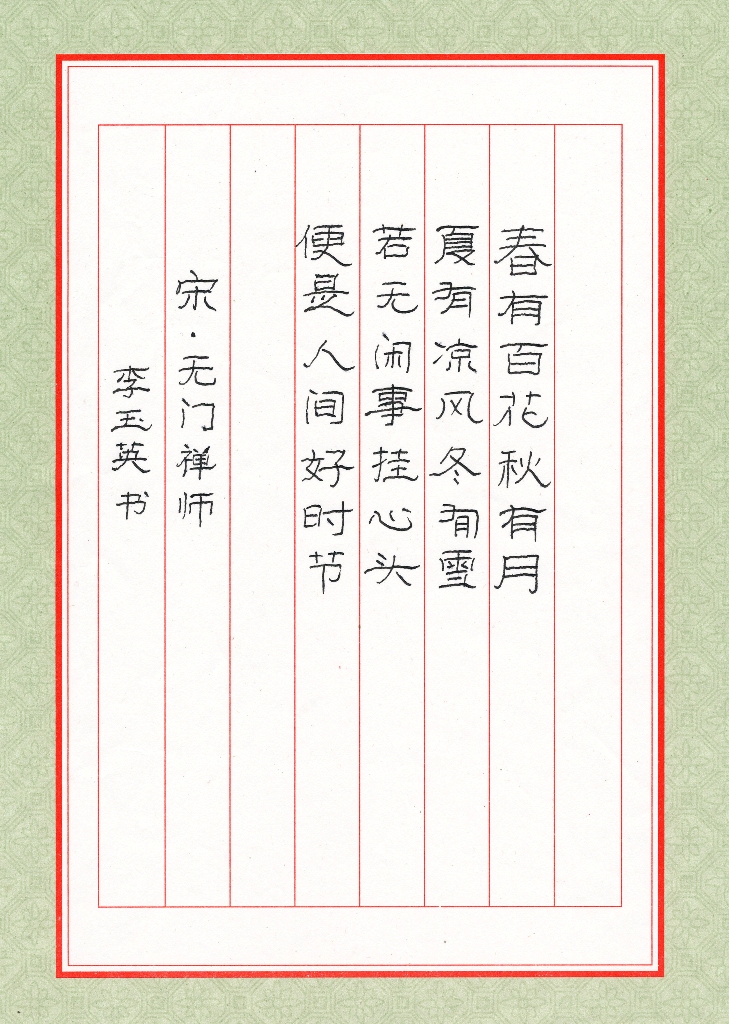 春有百花秋有月
夏有凉风冬有雪
若无闲事挂心头
便是人间好时节
宋·无门禅师
李玉英书